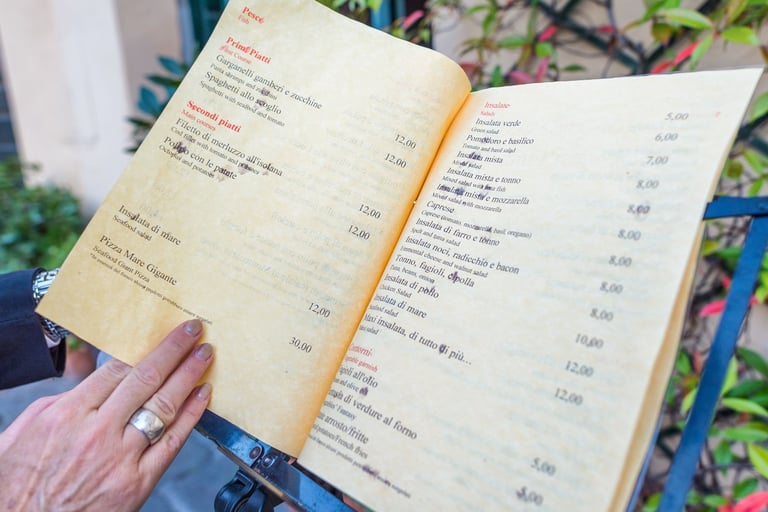 Pesce
Fish
Primi Piatti
First Course
Garganelli gamberi e zucchine 12,00
Pasta shrimps and zucchini
Spaghetti allo scoglio 12,00
Spaghetti with seafood and tomato
Secondi piatti
Main courses
Filetto di merluzzo all'isolana 12,00
Cod fillet with tomato and potatoes
Polpo con le patate 12,00
Octopus and potatoes
Insalata di mare 12,00
Seafood salad
Pizza Mare Gigante 30,00
Seafood Giant Pizza
Insalate
Salads
Insalata verde 5,00
Green salad
Pomodoro e basilico 6,00
Tomato and basil salad
Insalata mista 7,00
Mixed salad
Insalata mista e tonno 8,00
Mixed salad with tuna fish
Insalata mista e mozzarella 8,00
Mixed salad with mozzarella
Caprese 8,00
Caprese (tomato, mozzarella, basil, oregano)
Insalata di farro e tonno 8,00
Spelt and tuna salad
Insalata noci, radicchio e bacon 8,00
Emmental cheese and walnut salad
Tonno, fagioli, cipolla 8,00
Tuna, beans, onion
Insalata di pollo 10,00
Chicken Salad
Insalata di mare 12,00
seafood salad
Maxi insalata, di tutto di più... 12,00
salad
Contorni
garnish
all'olio 5,00
and olive oil
di verdure al forno 5,00
Fantasy
arrosto/fritte
potatoes/French fries